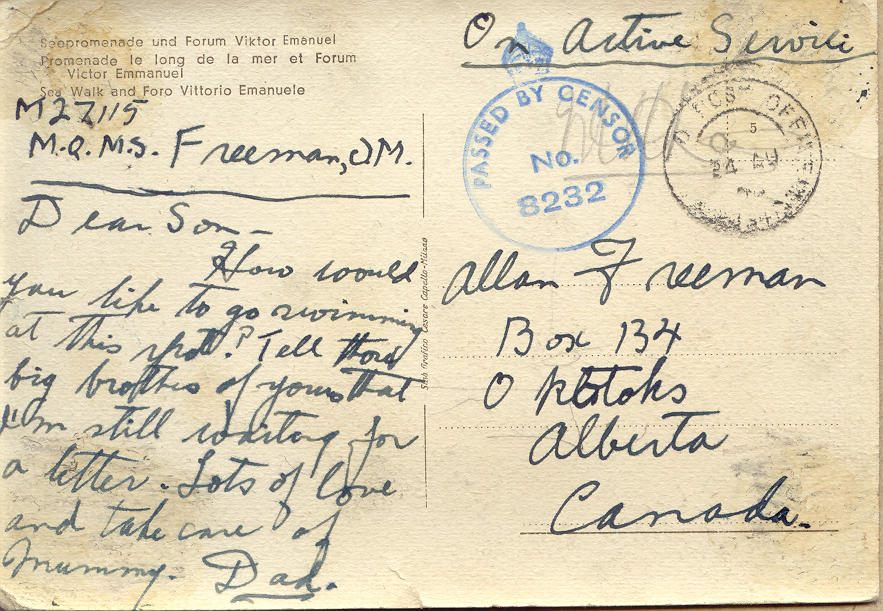 Seepromenade und Forum Viktor Emanuel
Promenade le long de la mer et Forum
Victor Emmanuel
Sea Walk and Foro Vittorio Emanuele
M27115
M.Q.M.S. Freeman, J.M.
Dear Son -
How would
you like to go swimming
at this spot? Tell those
big brothers of yours that
I'm still waiting for
a letter. Lots of love
and take care of
Mummy. Dad.
Cesare Capello-Milano
On Active Service
PASSED BY CENSOR
No.
8232
POST OFFICE
5
24 AU
Allan Freeman
Box 134
Okotoks
Alberta
Canada.